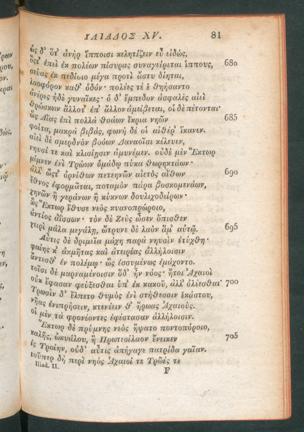 ΙΛΙΑΔΟΣ XV. 81
ὡς δ' ὅτ' ἀνὴρ ἵπποισι κελητίζειν εὖ εἰδώς,
ὅστ' ἐπεὶ ἐκ πολέων πίσυρας συναγείρεται ἵππους, 680
σεύας ἐκ πεδίοιο μέγα προτὶ ἄστυ δίηται,
λαοφόρον καθ' ὁδόν· πολέες τέ ἑ θηήσαντο
ἀνέρες ἠδὲ γυναῖκες· ὁ δ' ἔμπεδον ἀσφαλὲς αἰεὶ
θρώσκων ἄλλοτ' ἐπ' ἄλλον ἀμείβεται, οἱ δὲ πέτονται·
ὣς Αἴας ἐπὶ πολλὰ θοάων ἴκρια νηῶν 685
φοίτα, μακρὰ βιβάς, φωνὴ δέ οἱ αἰθέρ' ἵκανεν.
αἰεὶ δὲ σμερδνὸν βοόων Δαναοῖσι κέλευεν,
νηυσί τε καὶ κλισίῃσιν ἀμυνέμεν. οὐδὲ μὲν Ἕκτωρ
μίμνεν ἐνὶ Τρώων ὁμάδῳ πύκα θωρηκτάων·
ἀλλ' ὥστ' ὀρνίθων πετεηνῶν αἰετὸς αἴθων 690
ἔθνος ἐφορμᾶται, ποταμὸν πάρα βοσκομενάων,
χηνῶν ἢ γεράνων ἢ κύκνων δουλιχοδείρων·
ὣς Ἕκτωρ ἴθυσε νεὸς κυανοπρώροιο,
ἀντίος ἀΐσσων· τὸν δὲ Ζεὺς ὦσεν ὄπισθεν
χειρὶ μάλα μεγάλῃ, ὤτρυνε δὲ λαὸν ἅμ' αὐτῷ. 695
Αὖτις δὲ δριμεῖα μάχη παρὰ νηυσὶν ἐτύχθη·
φαίης κ' ἀκμῆτας καὶ ἀτειρέας ἀλλήλοισιν
ἄντεσθ' ἐν πολέμῳ· ὣς ἐσσυμένως ἐμάχοντο.
τοῖσι δὲ μαρναμένοισιν ὅδ' ἦν νόος· ἤτοι Ἀχαιοὶ
οὐκ ἔφασαν φεύξεσθαι ὑπ' ἐκ κακοῦ, ἀλλ' ὀλέεσθαι· 700
Τρωσὶν δ' ἔλπετο θυμὸς ἐνὶ στήθεσσιν ἑκάστου,
νῆας ἐνιπρήσειν, κτενέειν θ' ἥρωας Ἀχαιούς.
οἱ μὲν τὰ φρονέοντες ἐφέστασαν ἀλλήλοισιν.
Ἕκτωρ δὲ πρύμνης νεὸς ἥψατο ποντοπόροιο,
καλῆς, ὠκυάλου, ἣ Πρωτεσίλαον ἔνεικεν 705
ἐς Τροίην, οὐδ' αὖτις ἀπήγαγε πατρίδα γαῖαν.
τοῦπερ δὴ περὶ νηὸς Ἀχαιοί τε Τρῶές τε
Iliad. II. F